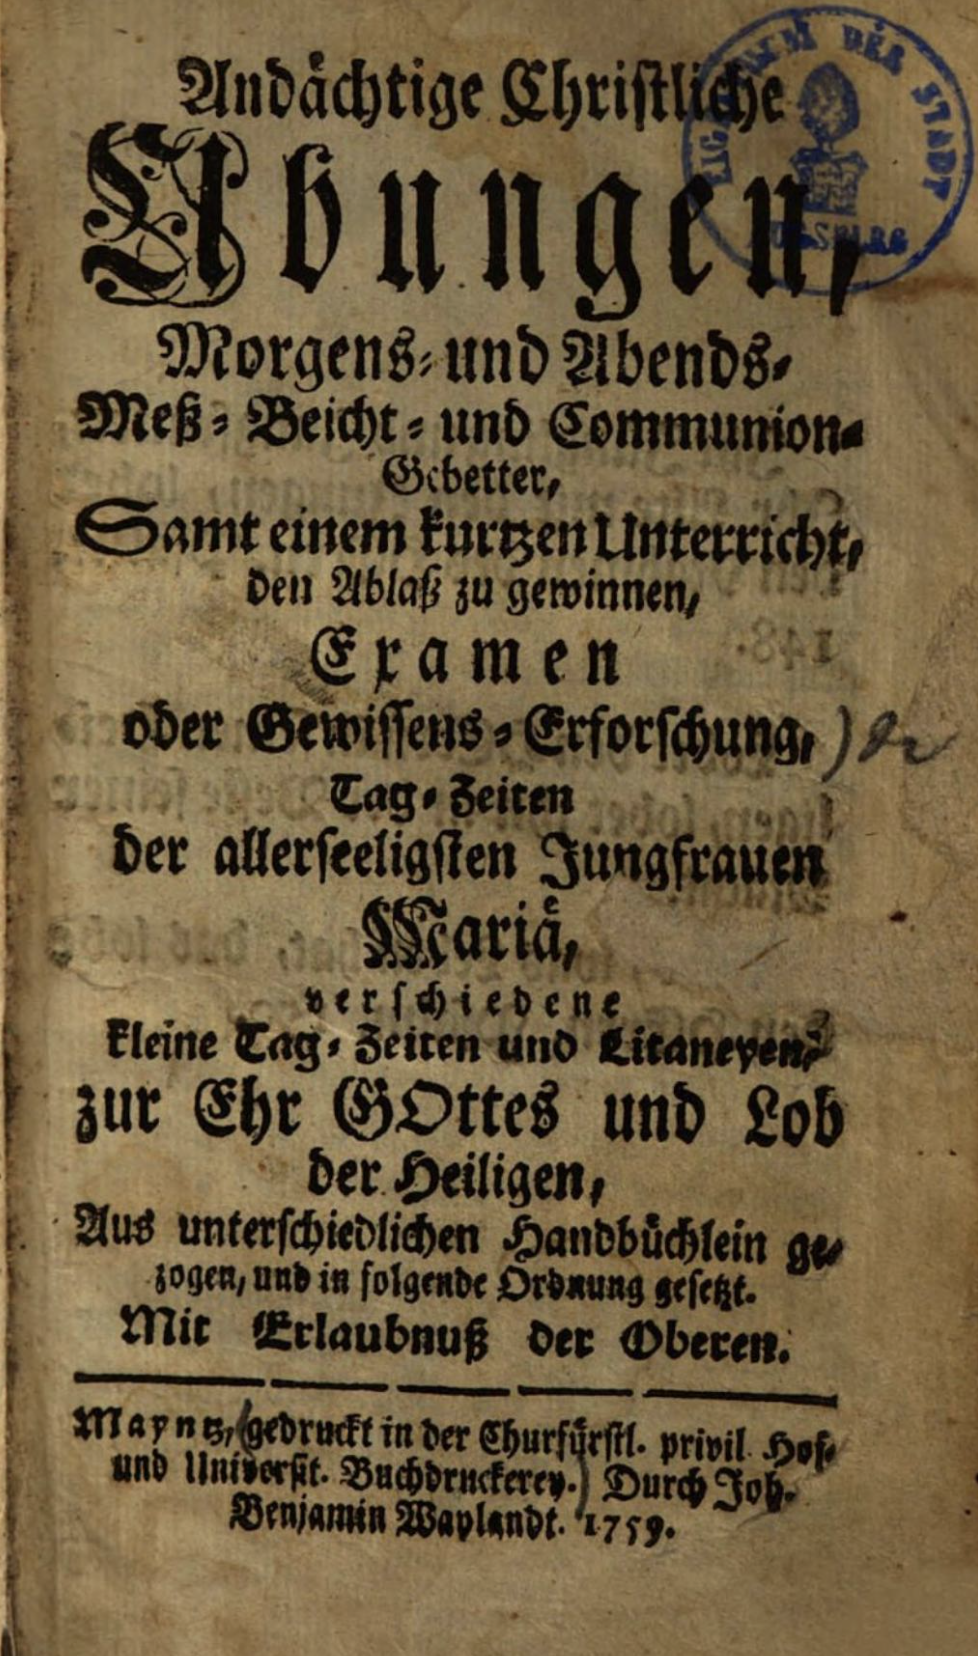 Andächtige Christliche
Ubungen,
Morgens- und Abends-
Meß- Beicht- und Communion-
Gebetter,
Samt einem kurtzen Unterricht,
den Ablaß zu gewinnen,
Examen
oder Gewissens-Erforschung,
Tag-Zeiten
der allerseeligsten Jungfrauen
Mariä,
verschiedene
kleine Tag-Zeiten und Litaneyen,
zur Ehr GOttes und Lob
der Heiligen,
Aus unterschiedlichen Handbüchlein ge-
zogen, und in folgende Ordnung gesetzt.
Mit Erlaubnuß der Oberen.
Mayntz, gedruckt in der Churfürstl. privil. Hof-
und Universit. Buchdruckerey. Durch Joh.
Benjamin Waylandt. 1759.
DER STADT